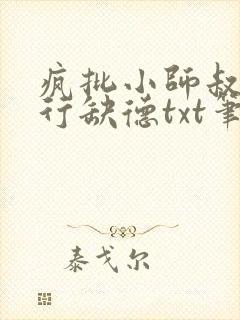 疯批小师叔
行缺德txt笔
泰戈尔